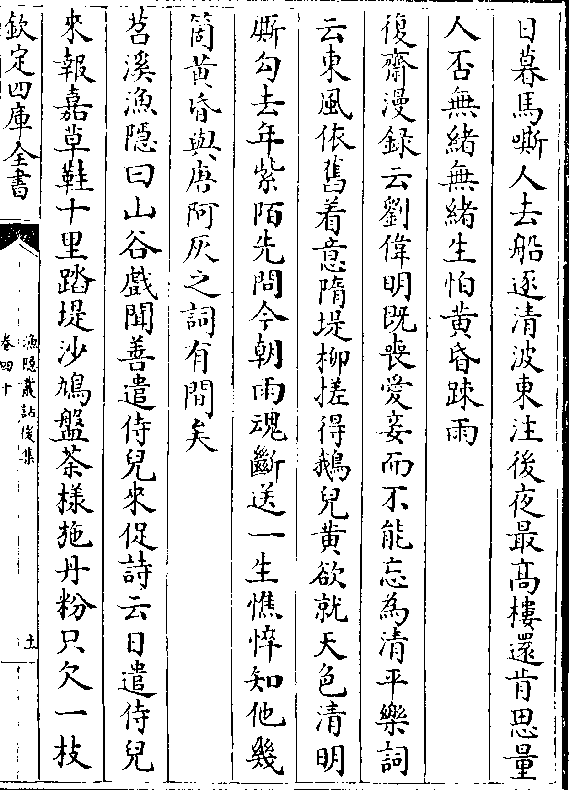 日暮馬嘶人去船逐清波東注後夜最髙樓還肯思量
人否無緒無緒生怕黄昏踈雨
復齋漫録云劉偉明既喪愛妾而不能忘為清平樂詞
云東風依舊着意隋堤柳搓得鵝兒黄欲就天色清明
厮勾去年紫陌先問今朝雨魂斷送一生憔悴知他幾
箇黄昏與唐阿灰之詞有間矣
苕溪漁隱曰山谷戲聞善遣侍兒來促詩云日遣侍兒
來報嘉草鞋十里踏堤沙鳩盤茶樣施丹粉只欠一枝
欽定四庫全書
漁隱叢話後集
卷四十